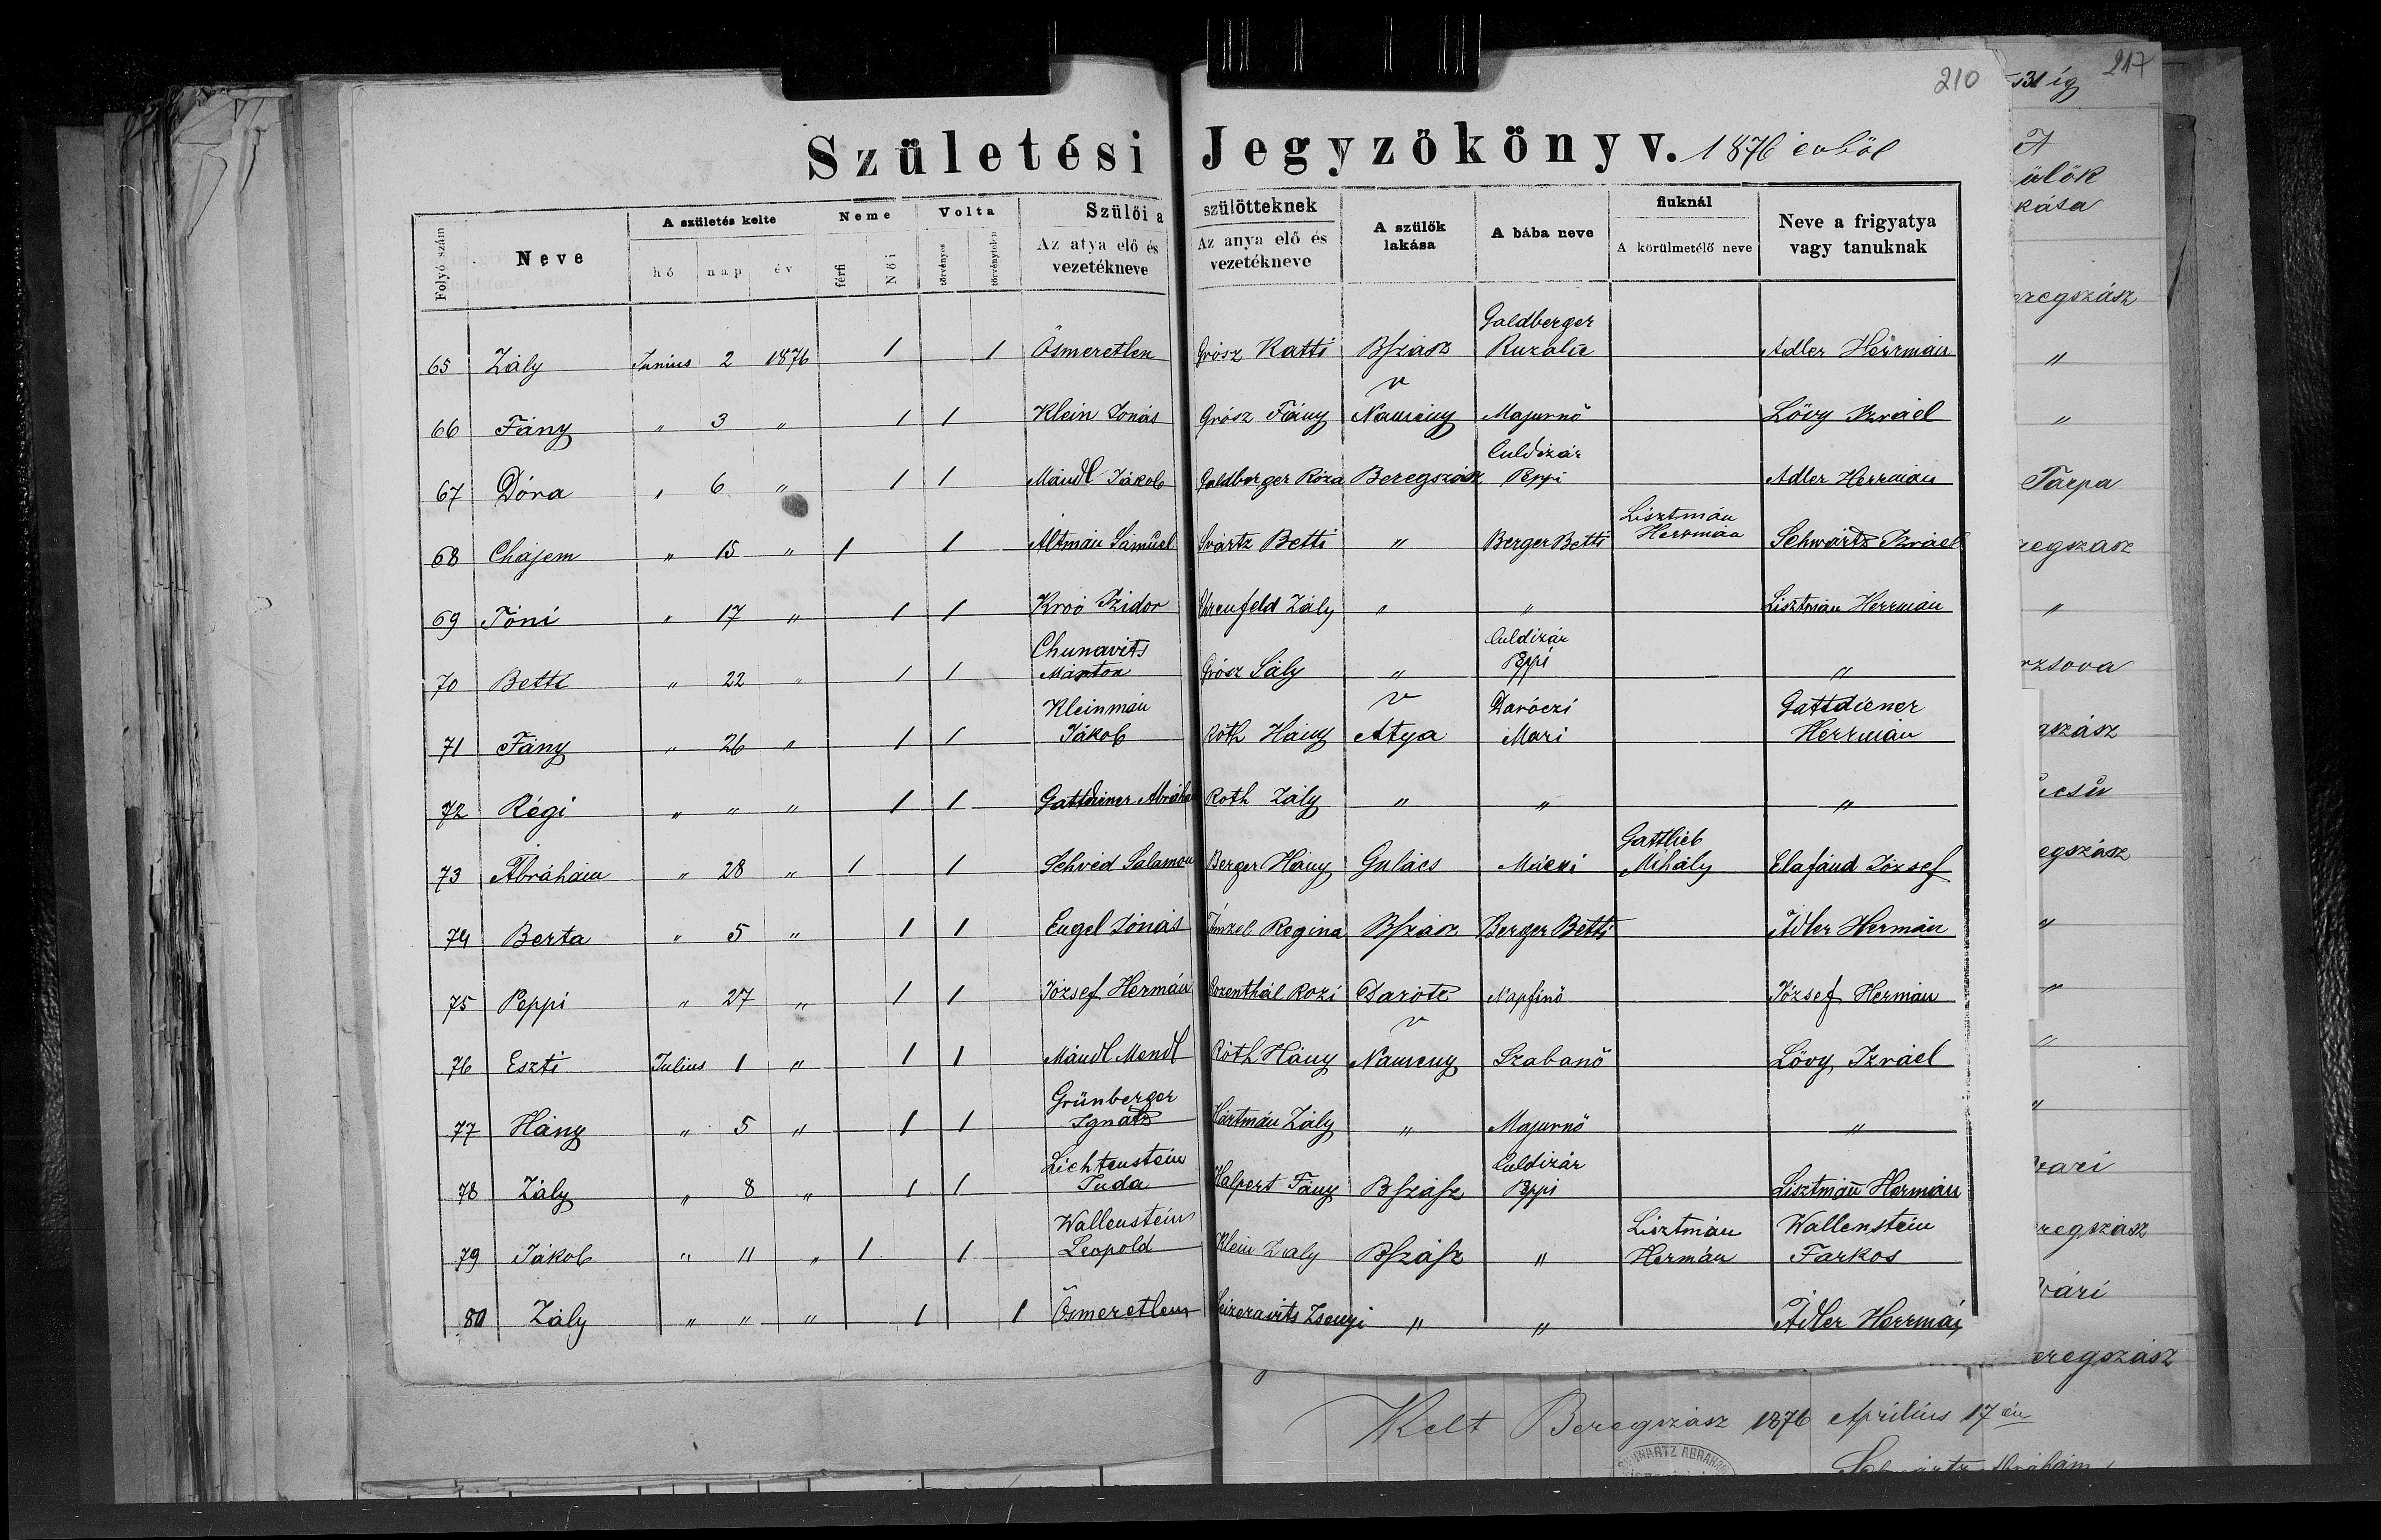 210
217
Születési Jegyzökönyv. 1876 évböl
Folyó szám
Neve
A születés kelte
hó nap év
Neme
férfi Női
Volta
törvényes törvénytelen
Szülői a szülötteknek
Az atya elő és vezetékneve
Az anya elő és vezetékneve
A szülők lakása
A bába neve
fiuknál
A körülmetélő neve
Neve a frigyatya vagy tanuknak
65 Zály Junius 2 1876 1 1 Ösmeretlen Grósz Katti Bszász Goldberger Ruzalie Adler Herrmán
66 Fány " 3 " 1 1 Klein Jonás Grósz Fány v Namény Majurnö Lövy Izráel
67 Dóra " 6 " 1 1 Mándl Jákob Goldberger Róza Beregszász Culdizár Peppi Adler Herrmán
68 Chájem " 15 " 1 1 Altmán Sámuel Svártz Betti " Berger Betti Lisztmán Herrmán Schwartz Izráel
69 Tóni " 17 " 1 1 Króó Izidor Ehrenfeld Zály " " Lisztmán Herrmán
70 Betti " 22 " 1 1 Chunavits Márton Grósz Sály " Culdizár Peppi "
71 Fány " 26 " 1 1 Kleinmán Jákob Róth Hány v Atya Daróczi Mari Gattdiener Herrmán
72 Régi " " " 1 1 Gattdiener Abrahám Roth Zály " " "
73 Ábráhám " 28 " 1 1 Schvéd Salamon Berger Hány Gulács Máczi Gattlieb Mihály Elafánd József
74 Berta " 5 " 1 1 Engel Jónás Regina Bszász Berger Betti Adler Hermán
75 Peppi " 27 " 1 1 József Hermán Rozenthál Rozi Darótz Napfinö József Hermán
76 Eszti Julius 1 " 1 1 Mándl Mendl Róth Hány v Namény Szabanö Lövy Izráel
77 Hány " 5 " 1 1 Grünberger Ignátz Hártmán Zály " Majurnö "
78 Zály " 8 " 1 1 Lichtenstein Juda Halpert Fány Bszász Culdizár Peppi Lisztmán Hermán
79 Jákob " 11 " 1 1 Wallenstein Leopold Klein Zaly Bszász " Lisztmán Hermán Wallenstein Farkos
80 Zály " " " 1 1 Ösmeretlen Zsenyi " " Adler Herrmán
31 ig
A
ülök
kása
regszász
"
"
Tarpa
regszász
"
rzsova
gszász
ucsu
egszász
"
"
"
"
zari
regszász
vári
eregszász
Kelt Beregszász 1876 Április 17 én
SCHWARTZ ABRAHAM
Schwartz Abrahám